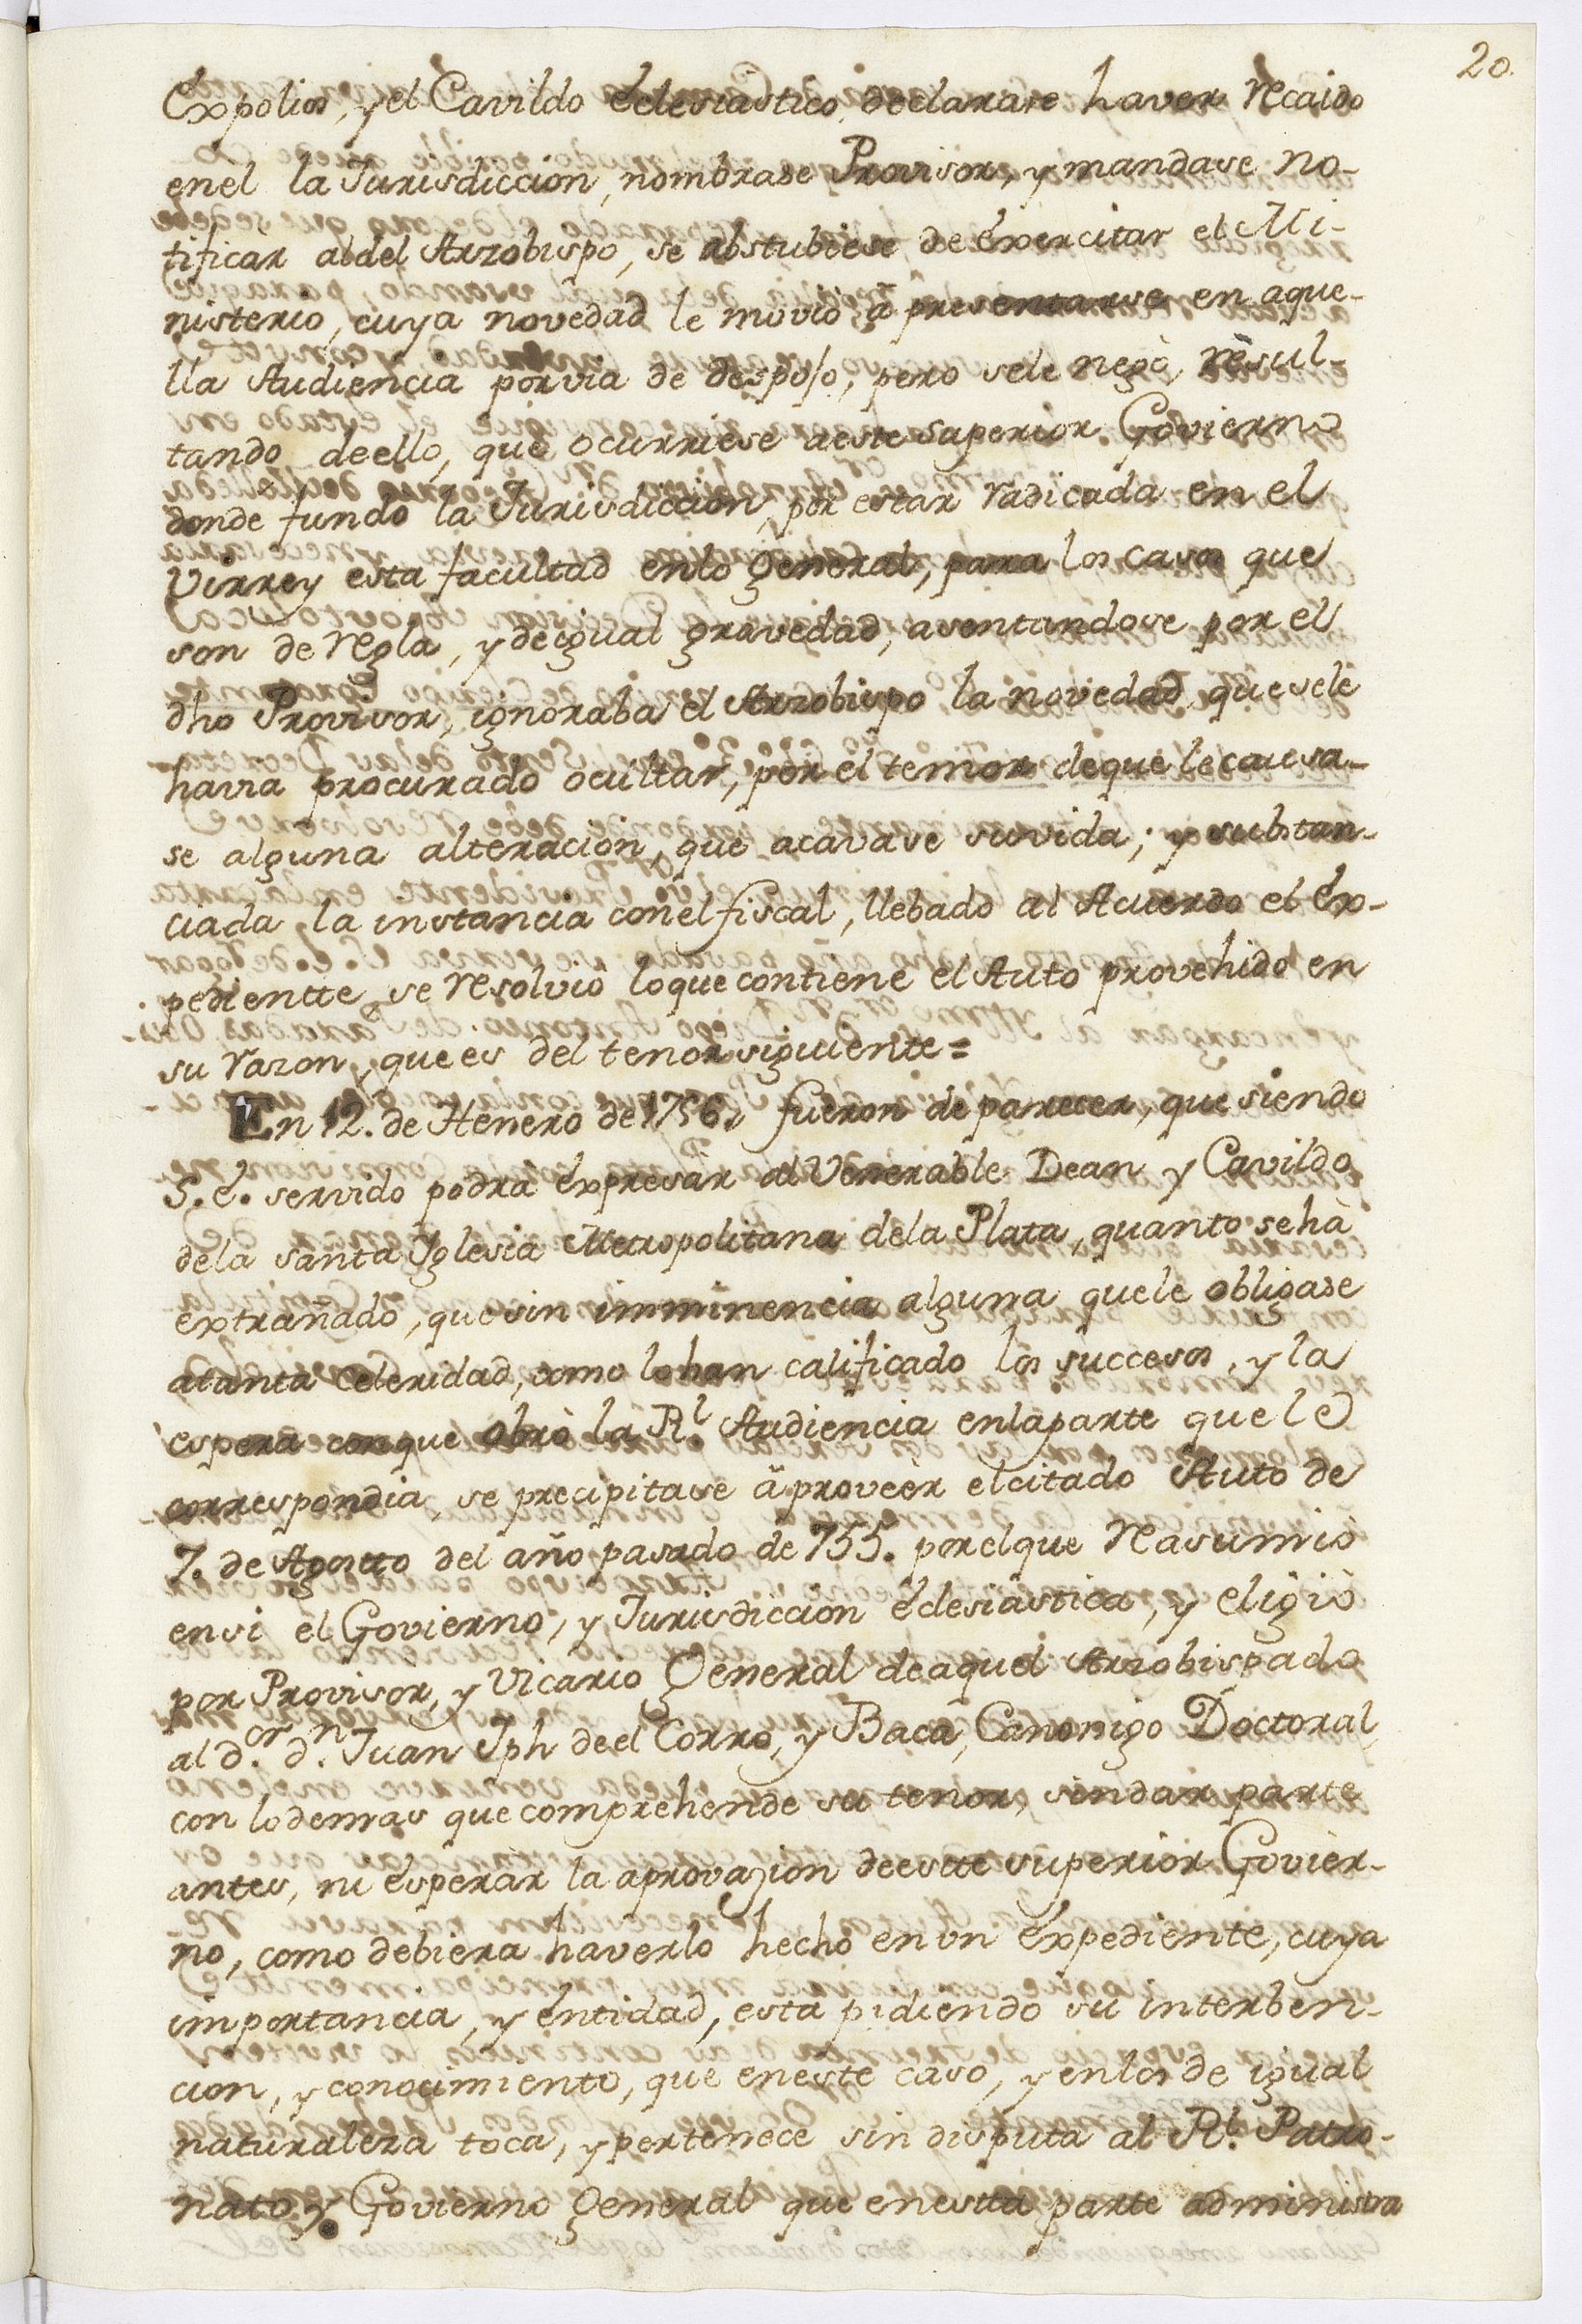 20.
Expolios, y el Cavildo Eclesiastico, declarase haver recaido
enel la Jurisdiccion, nombrase Provisor, y mandase no-
tificar aldel Arzobispo, se abstubiese de exercitar el Mi-
nisterio, cuya novedad le movió à presentarse en aque-
lla Audiencia porvia de despojo, pero sele negò, resul-
tando deello, que ocurriese aeste Superior Govierno
donde fundo la Jurisdiccion, por estar radicada en el
Virrey esta facultad enlo general, para los casos que
son de regla, y deigual gravedad, asentandose por el
dho Provisor, ignoraba el Arzobispo la novedad, quesele
havia procurado ocultar, por el temor deque le causa-
se alguna alteracion, que acavase suvida; y substan-
ciada la instancia conelfiscal, llebado al Acuerdo el Ex-
pedientte, se resolvió loque contiene el Auto provehido en
su razon, quees del tenor siguiente=
En 12. de Henero de 1756. fueron de parecer, que siendo
S. E. servido podra expresàr al Venerable Dean y Cavildo
dela santa Iglesia Metropolitana dela Plata, quanto sehà
extrañado, quesin imminencia alguna quele obligase
atanta celeridad, como lohan calificado los successos, y la
espera conque obrò la Rl. Audiencia enlaparte que le
correspondia, se precipitase à proveer elcitado Auto de
7. de Agosto del año pasado de 755. porelque reasumio
ensi el Govierno, y Jurisdiccion eclesiastica, y eligiò
por Provisor, y Vicario General deaquel Arzobispado
al dor. dn. Juan Jph deel Corro, y Baca, Canonigo Doctoral,
con lodemas que comprehende su tenor, sindar parte
antes, ni esperàr la aprovazion deeste superior Govier-
no, como debiera haverlo hecho enun expediente, cuya
importancia, y entidad, esta pidiendo su interben-
cion, y conocimiento, que eneste caso, y enlos de igual
naturaleza toca, y pertenece sin disputa al Rl. Patro-
nato, y Govierno general que enestta parte administra